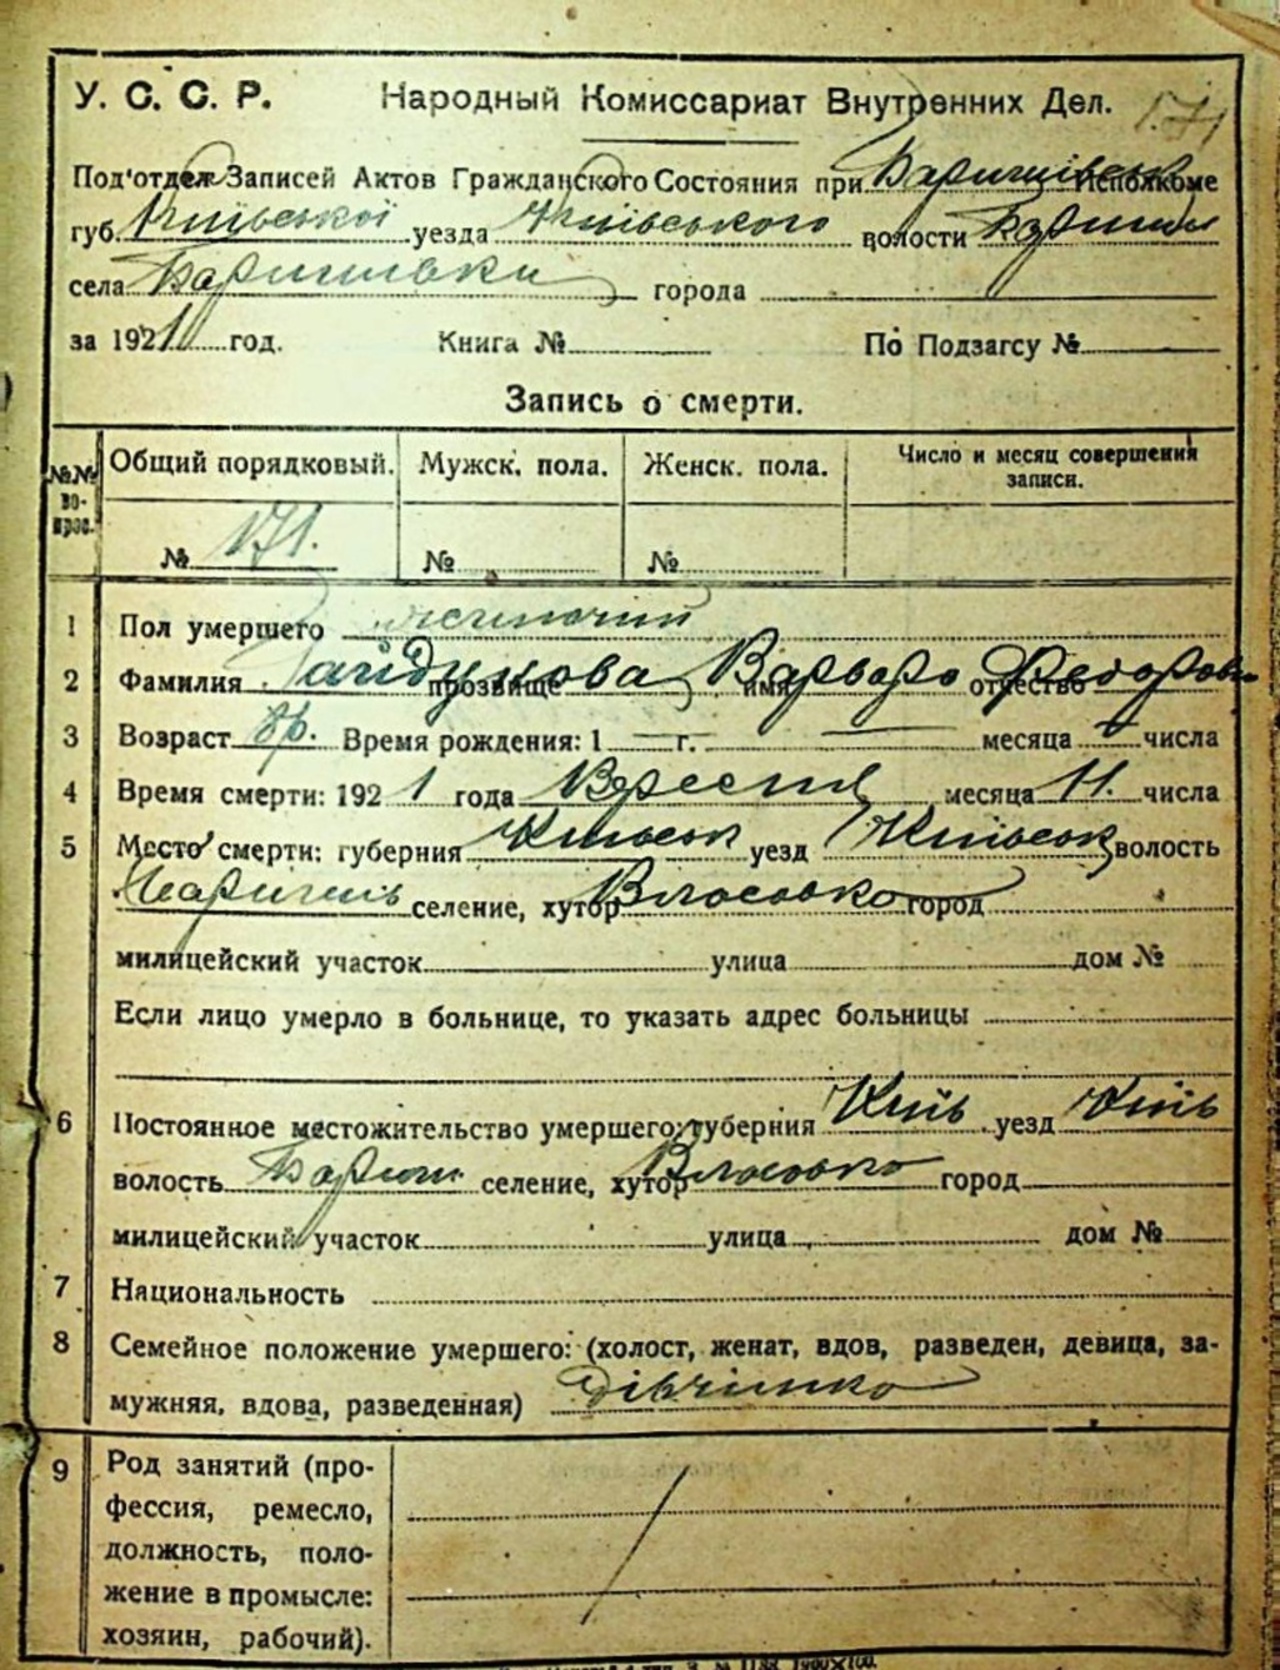 У. С. С. Р. Народный Комиссариат Внутренних Дел. 171
Под'отдел Записей Актов Гражданского Состояния при Баришівськ Исполкоме
губ. Київської уезда Київського волости Бариш
села Баришівки города
за 1921 год. Книга № По Подзагсу №
Запись о смерти.
№№ вопрос. Общий порядковый. Мужск. пола. Женск. пола. Число и месяц совершения записи.
№ 171. № №
1 Пол умершего жіночий
2 Фамилия Гайдукова прозвище имя Варвара отчество Федоровн
3 Возраст 8р. Время рождения: 1 — г. — месяца — числа
4 Время смерти: 1921 года Вересня месяца 11. числа
5 Место смерти: губерния Київськ уезд Київськ волость
Баришів селение, хутор Власовка город
милицейский участок улица дом №
Если лицо умерло в больнице, то указать адрес больницы
6 Постоянное местожительство умершего: губерния Київ уезд Київ
волость Бариш селение, хутор Власовка город
милицейский участок улица дом №
7 Национальность
8 Семейное положение умершего: (холост, женат, вдов, разведен, девица, за-
мужняя, вдова, разведенная) Дівчинка
9 Род занятий (про-
фессия, ремесло,
должность, поло-
жение в промысле:
хозяин, рабочий).